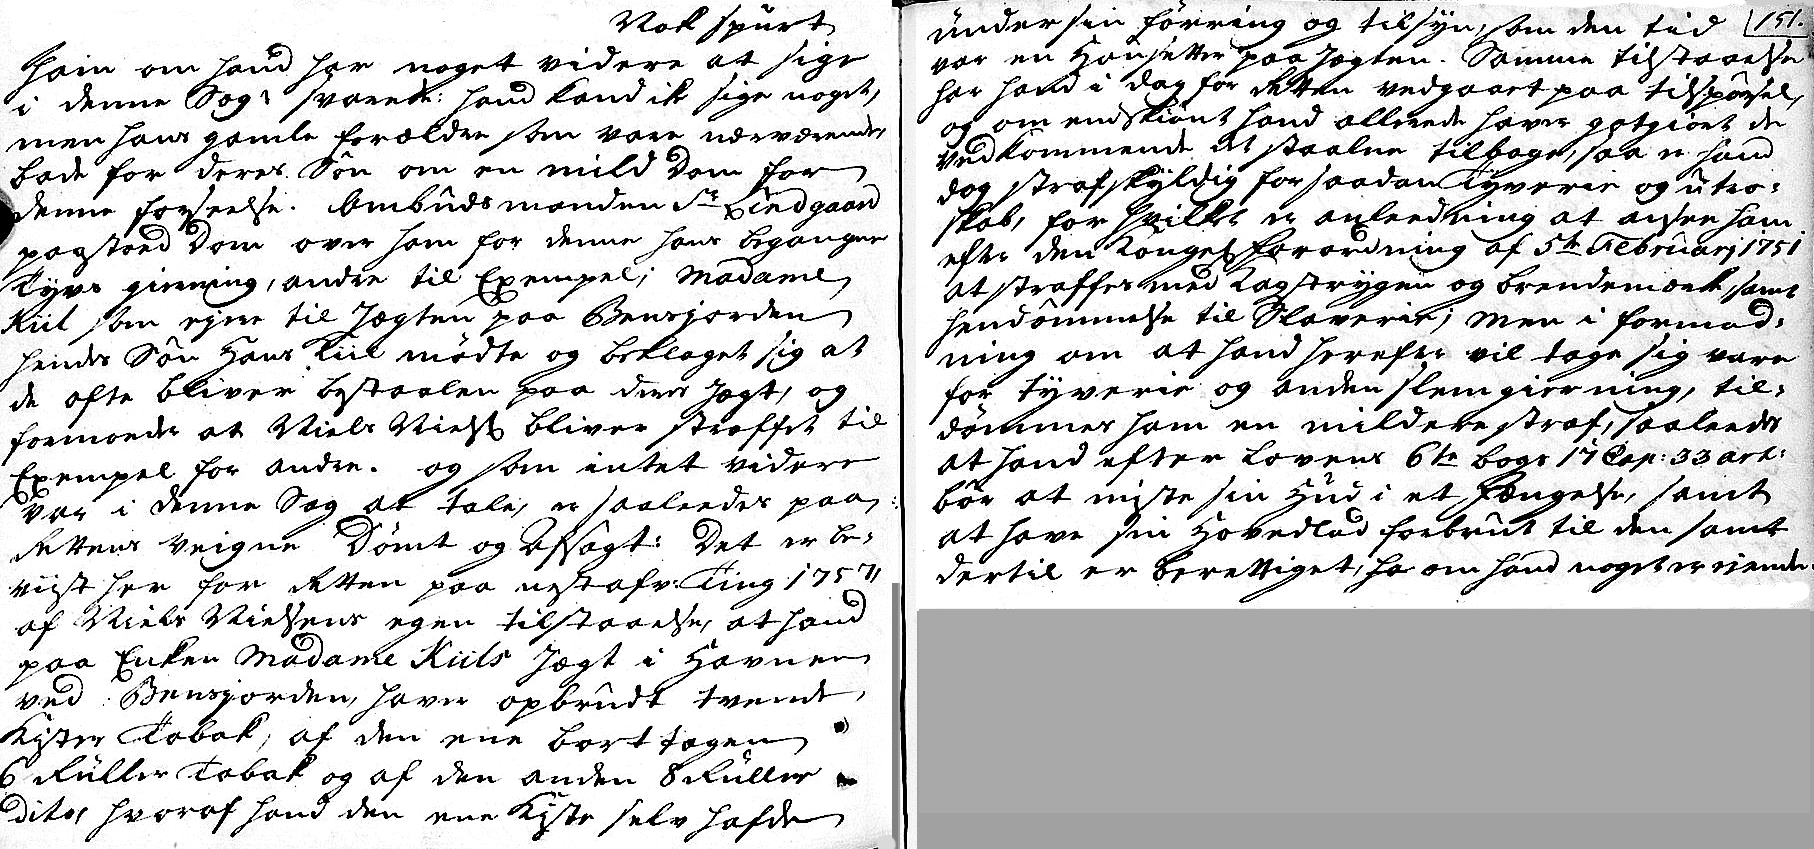 Nok spurt
ham om hand har noget videre at sige
i denne Sag? svarede: hand kand ik sige noget,
men hans gamle forældre som vare nærværende,
bade for deres Sön om en mild Dom for
denne forseelse. Ombudsmanden Sr Lindgaard
paastoed Dom over ham for denne hans begangne
Tyvs gierning, andre til Exempel; Madame
Kiil som ejere til Jægten paa Bensjorden
hendes Sön Hans Kiil mödte og beklaget sig at
de ofte bliver bestaalen paa deres Jægt, og
formoede at Niels Nielss bliver straffet til
Exempel for andre. og som intet videre
var i denne Sag at tale, er saaleedes paa
Rettens veigne Dömt og Afsagt: Det er be-
viist her for Retten paa nestafv: Ting 1757
af Niels Nielsens egen tilstaaelse, at hand
paa Enken Madame Kiils Jægt i Havnen
ved Bensjorden, haver opbrudt tvende
Kister Tobak, af den ene borttagen
6 Ruller Tobak og af den anden 8 Ruller
dito, hvoraf hand den ene Kiste selv hafde
151.
under sin förring og tilsyn, som den tid
var en Hausetter paa Jægten. Samme tilstaaelse
har hand i dag for Retten vedgaaet paa tilspörsel,
og om endskiönt hand allerede haver gotgiort de
vedkommende det staalne tilbage, saa er hand
dog strafskyldig for saadan Tyverie og utro-
skab, for hvilket er anleedning at ansee ham
efter den Kongel Forordning af 5te Februarj 1751
at straffes med Kagstrygen og brendemærk samt
hendömmelse til Slaverie; Men i formod-
ning om at hand herefter vil tage sig vare
for tyverie og anden slem gierning, til-
dömmes ham en mildere straf, saaleedes
at hand efter Lovens 6te bogs 17 Cap: 33 art:
bör at miste sin Hud i et Fængelse, samt
at have sin Hovedlod forbrut til den samt
dertil er berettiget, ha om hand noget er eiende.